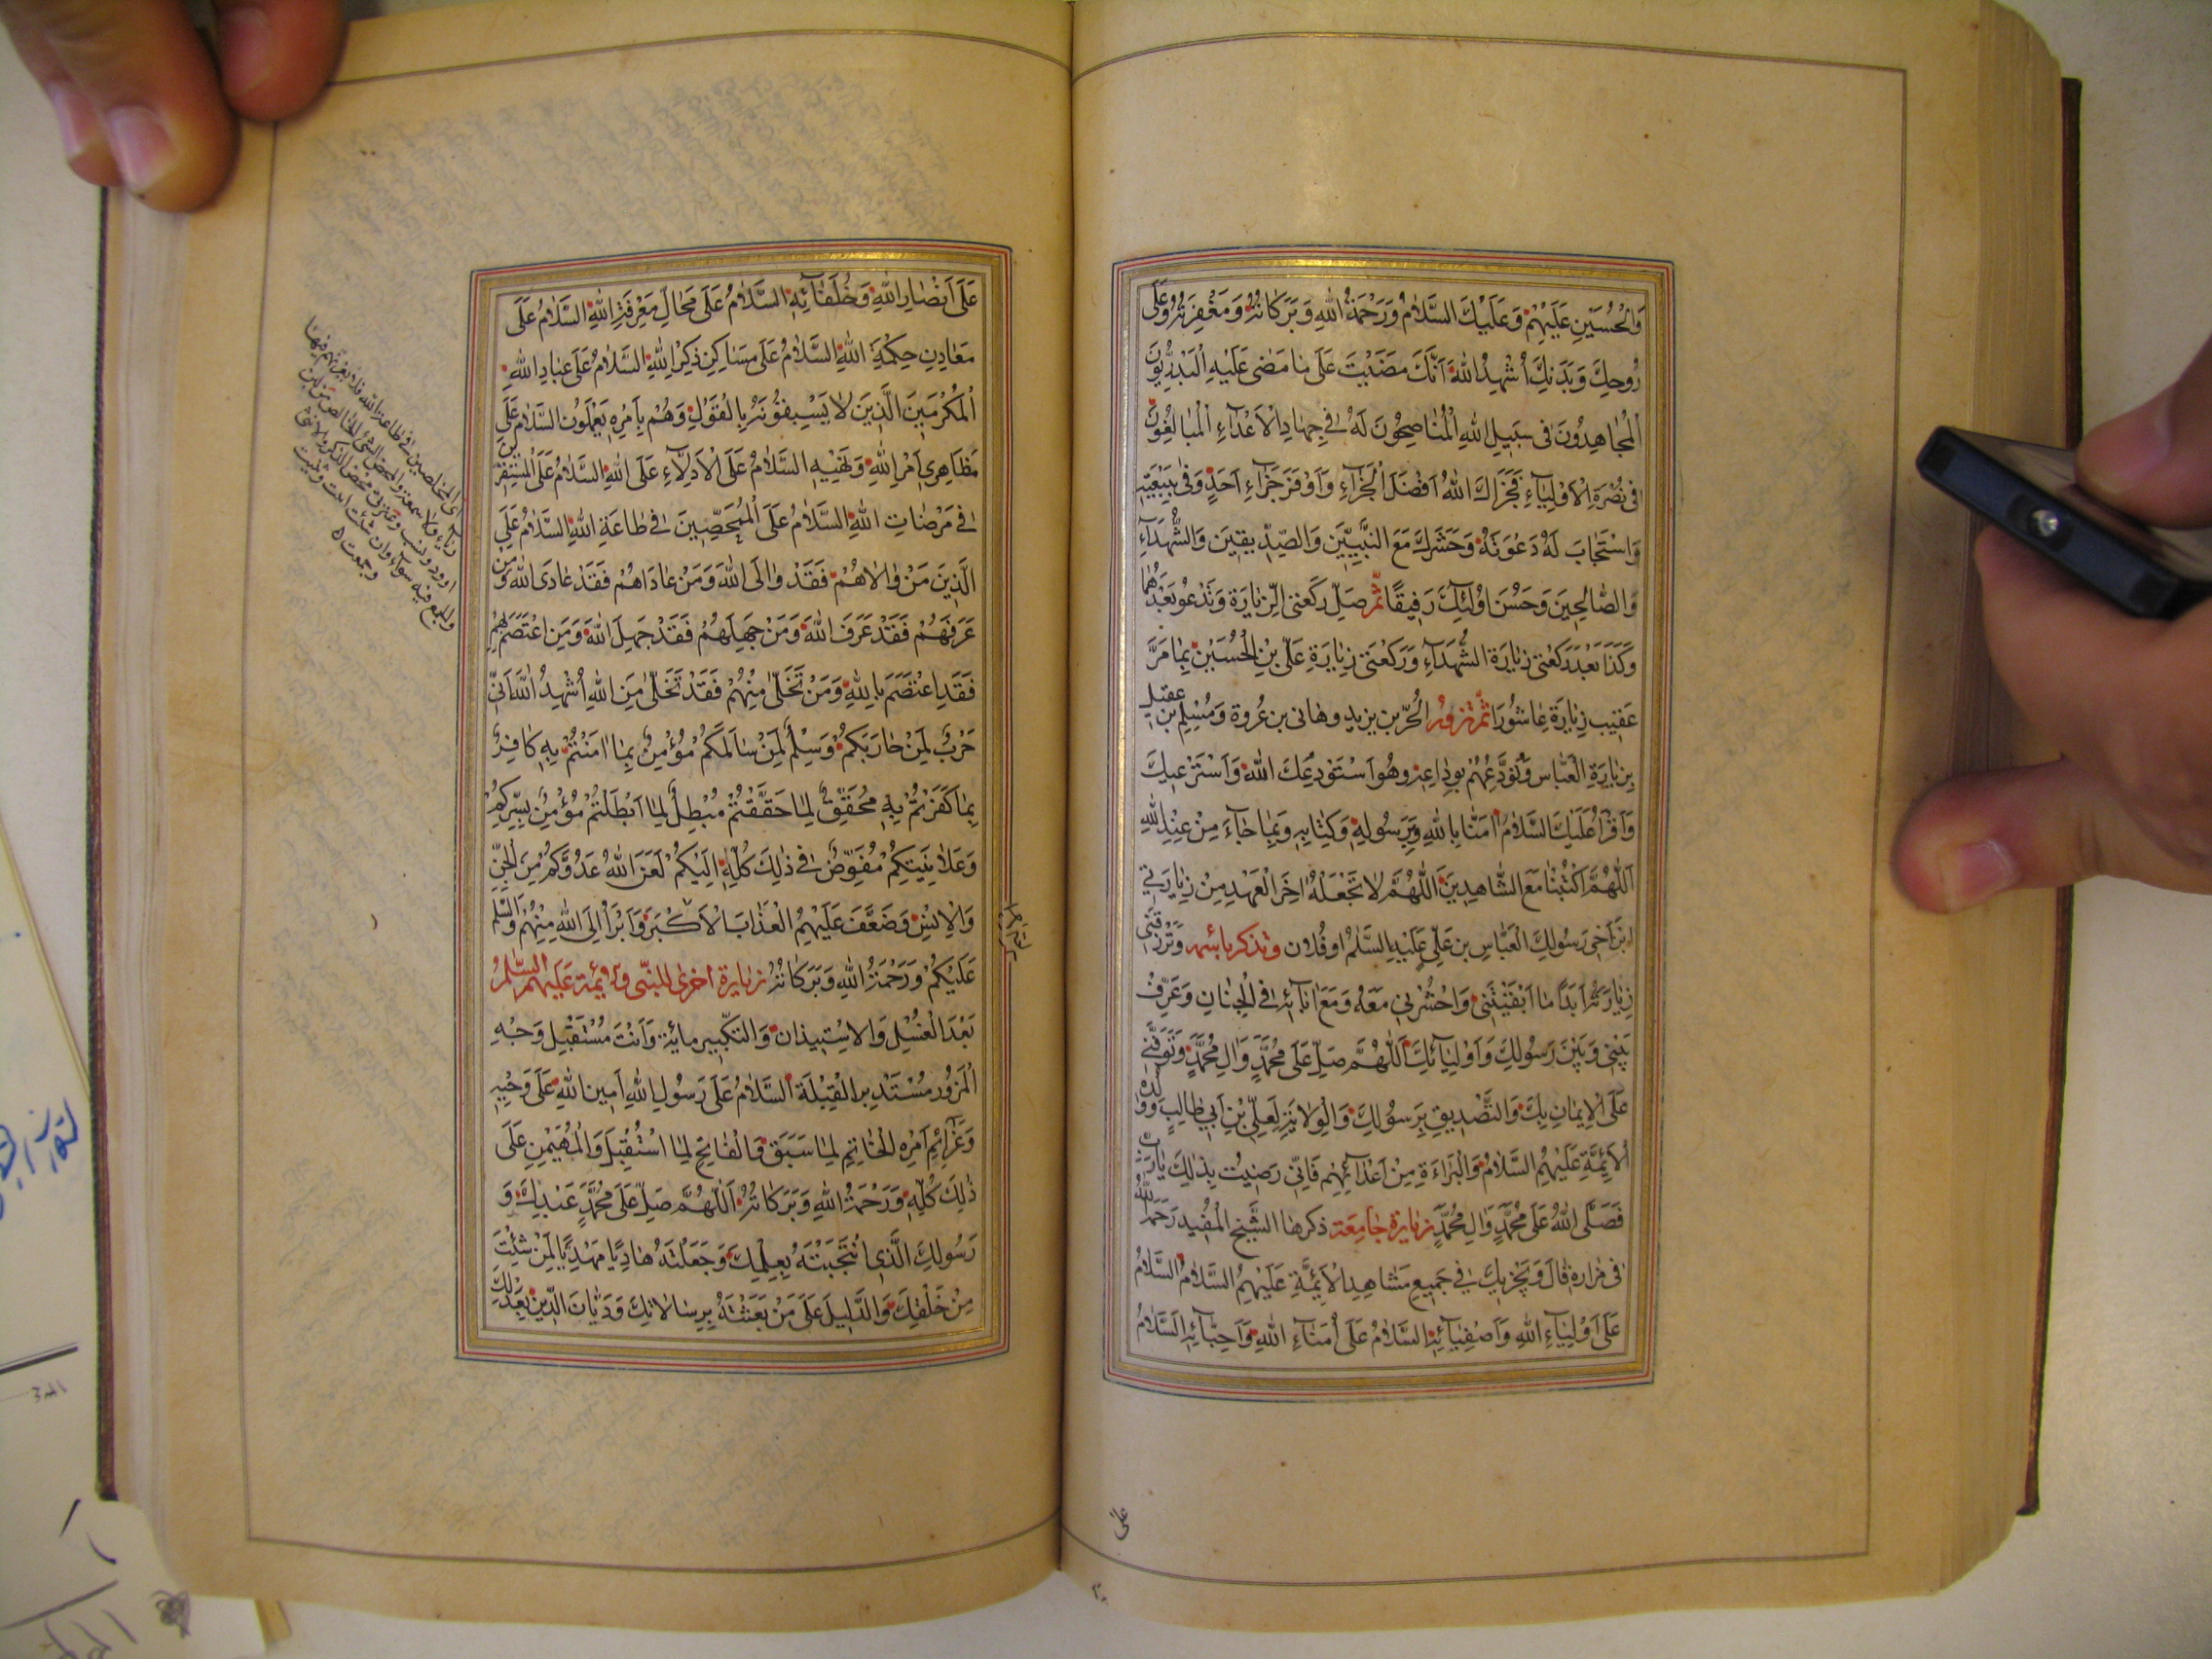 وَالْحُسَيْنِ عَلَيْهِمْ وَعَلَيْكَ السَّلَامُ وَرَحْمَةُ اللهِ وَبَرَكَاتُهُ وَمَغْفِرَتُهُ وَعَلَى
رُوحِكَ وَبَدَنِكَ أُشْهِدُ اللهَ أَنَّكَ مَضَيْتَ عَلَى مَا مَضَى عَلَيْهِ الْبَدْرِيُّونَ
الْمُجَاهِدُونَ فِي سَبِيلِ اللهِ الْمُنَاصِحُونَ لَهُ فِي جِهَادِ الْأَعْدَاءِ الْمُبَالِغُونَ
فِي نُصْرَةِ الْأَوْلِيَاءِ فَجَزَاكَ اللهُ أَفْضَلَ الْجَزَاءِ وَأَوْفَرَ جَزَاءِ أَحَدٍ وَفَى بِبَيْعَتِهِ
وَاسْتَجَابَ لَهُ دَعْوَتَهُ وَحَشَرَكَ مَعَ النَّبِيِّينَ وَالصِّدِّيقِينَ وَالشُّهَدَاءِ
وَالصَّالِحِينَ وَحَسُنَ اُولٰئِكَ رَفِيقًا ثُمَّ صَلِّ رَكْعَتَيِ الزِّيَارَةِ وَتَدْعُو بَعْدَهُمَا
وَكَذَا بَعْدَ رَكْعَتَيْ زِيَارَةِ الشُّهَدَاءِ وَرَكْعَتَيْ زِيَارَةِ عَلِيِّ بْنِ الْحُسَيْنِ بِمَا مَرَّ
عَقِيبَ زِيَارَةِ عَاشُورَا ثُمَّ تَزُورُ الْحُرَّ بن يزيد وهانى بن عُروة وَمُسْلِمِ بن عقيل
بِزِيَارَةِ الْعَبَّاسِ وَتُوَدِّعُهُمْ بِوِدَاعِهِ وهُوَ اَسْتَوْدِعُكَ اللهَ وَاَسْتَرْعِيكَ
وَأَقْرَأُ عَلَيْكَ السَّلَامُ اٰمَنَّا بِاللهِ وَبِرَسُولِهِ وَكِتَابِهِ وَبِمَا جَاءَ مِنْ عِنْدِ اللهِ
اَللّٰهُمَّ اكْتُبْنَا مَعَ الشَّاهِدِينَ اَللّٰهُمَّ لَا تَجْعَلْهُ اٰخِرَ الْعَهْدِ مِنْ زِيَارَتِي
ابْنَ أَخِي رَسُولِكَ الْعَبَّاسِ بن عَلِيٍّ عَلَيْهِ السَّلٰمُ او فُلان وتذكر باسمه وَتَرْزُقَنِي
زِيَارَتَهُ اَبَدًا مَا اَبْقَيْتَنِي وَاحْشُرْنِي مَعَهُ وَمَعَ اٰبَائِهِ فِي الْجِنَانِ وَعَرِّفْ
بَيْنِي وَبَيْنَ رَسُولِكَ وَاَوْلِيَائِكَ اَللّٰهُمَّ صَلِّ عَلَى مُحَمَّدٍ وَالِ مُحَمَّدٍ وَتَوَفَّنِي
عَلَى الْإِيمَانِ بِكَ وَالتَّصْدِيقِ بِرَسُولِكَ وَالْوِلَايَةِ لِعَلِيِّ بْنِ أَبِي طَالِبٍ وَوُلْدِهِ
الْأَئِمَّةِ عَلَيْهِمُ السَّلَامُ وَالْبَرَاءَةِ مِنْ اَعْدَائِهِمْ فَاِنِّي رَضِيتُ بِذٰلِكَ يَا رَبِّ
فَصَلَّى اللهُ عَلَى مُحَمَّدٍ وَالِ مُحَمَّدٍ زيارة جامعة ذكرها الشَّيخ الْمُفيد رَحِمَهُ اللهُ
فى مزاره قال وَيُجْزِيكَ فِي جَمِيعِ مَشَاهِدِ الْأَئِمَّةِ عَلَيْهِمُ السَّلَامُ اَلسَّلَامُ
عَلَى اَوْلِيَاءِ اللهِ وَاَصْفِيَائِهِ السَّلَامُ عَلَى أُمَنَاءِ اللهِ وَاَحِبَّائِهِ السَّلَامُ
على
عَلَى اَنْصَارِ اللهِ وَخُلَفَائِهِ السَّلَامُ عَلَى مَحَالِّ مَعْرِفَةِ اللهِ السَّلَامُ عَلَى
مَعَادِنِ حِكْمَةِ اللهِ السَّلَامُ عَلَى مَسَاكِنِ ذِكْرِ اللهِ السَّلَامُ عَلَى عِبَادِ اللهِ
الْمُكْرَمِينَ الَّذِينَ لَا يَسْبِقُونَهُ بِالْقَوْلِ وَهُمْ بِاَمْرِهِ يَعْمَلُونَ السَّلَامُ عَلَى
مَظَاهِرِي اَمْرِ اللهِ وَنَهْيِهِ السَّلَامُ عَلَى الْاَدِلَّاءِ عَلَى اللهِ السَّلَامُ عَلَى الْمُسْتَقِرِّينَ
فِي مَرْضَاتِ اللهِ السَّلَامُ عَلَى الْمُمَحَّصِينَ فِي طَاعَةِ اللهِ السَّلَامُ عَلَى
الَّذِينَ مَنْ وَالَاهُمْ فَقَدْ وَالَى اللهَ وَمَنْ عَادَاهُمْ فَقَدْ عَادَى اللهَ وَمَنْ
عَرَفَهُمْ فَقَدْ عَرَفَ اللهَ وَمَنْ جَهِلَهُمْ فَقَدْ جَهِلَ اللهَ وَمَنِ اعْتَصَمَ بِهِمْ
فَقَدِ اعْتَصَمَ بِاللهِ وَمَنْ تَخَلّٰى مِنْهُمْ فَقَدْ تَخَلّٰى مِنَ اللهِ اُشْهِدُ اللهَ اَنِّي
حَرْبٌ لِمَنْ حَارَبَكُمْ وَسِلْمٌ لِمَنْ سَالَمَكُمْ مُؤْمِنٌ بِمَا اٰمَنْتُمْ بِهِ كَافِرٌ
بِمَا كَفَرْتُمْ بِهِ مُحَقِّقٌ لِمَا حَقَّقْتُمْ مُبْطِلٌ لِمَا اَبْطَلْتُمْ مُؤْمِنٌ بِسِرِّكُمْ
وَعَلَانِيَتِكُمْ مُفَوِّضٌ فِي ذٰلِكَ كُلِّهِ اِلَيْكُمْ لَعَنَ اللهُ عَدُوَّكُمْ مِنَ الْجِنِّ
وَالْاِنْسِ وَضَعَّفَ عَلَيْهِمُ الْعَذَابَ الْاَكْبَرَ وَاَبْرَأُ اِلَى اللهِ مِنْهُمْ وَالسَّلٰمُ
عَلَيْكُمْ وَرَحْمَةُ اللهِ وَبَرَكَاتُهُ زيارة اخرى للنبى والائمة عليهم السلم
بَعْدَ الْغُسْلِ وَالاسْتِيذان وَالتكبير مائة وَاَنْتَ مُسْتَقْبِل وَجْهِ
الْمَزُور مُسْتَدْبِر الْقِبْلَةِ اَلسَّلَامُ عَلَى رَسُولِ اللهِ اَمِينِ اللهِ عَلَى وَحْيِهِ
وَعَزَائِمِ اَمْرِهِ الْخَاتِمِ لِمَا سَبَقَ وَالْفَاتِحِ لِمَا اسْتُقْبِلَ وَالْمُهَيْمِنِ عَلَى
ذٰلِكَ كُلِّهِ وَرَحْمَةُ اللهِ وَبَرَكَاتُهُ اَللّٰهُمَّ صَلِّ عَلَى مُحَمَّدٍ عَبْدِكَ وَ
رَسُولِكَ الَّذِي انْتَجَبْتَهُ بِعِلْمِكَ وَجَعَلْتَهُ هَادِيًا مَهْدِيًّا لِمَنْ شِئْتَ
مِنْ خَلْقِكَ وَالدَّلِيلَ عَلَى مَنْ بَعَثْتَهُ بِرِسَالَاتِكَ وَدَيَّانَ الدِّينِ بِعَدْلِكَ